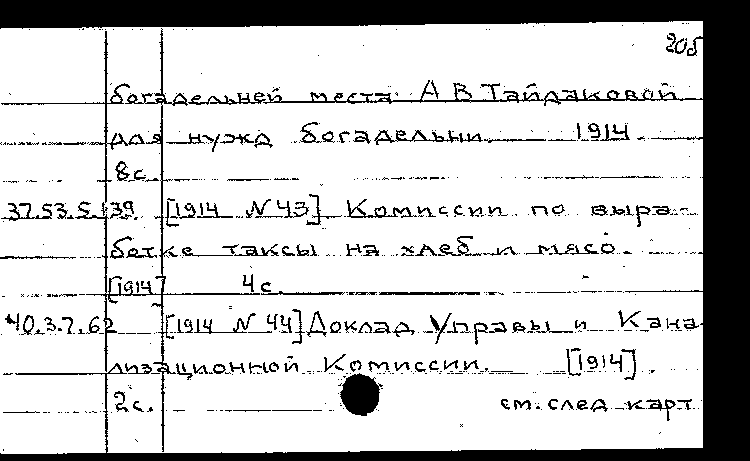 205
богадельней места А В Тайдаковой
для нужд богадельни. 1914.
8с.
37.53.5.139. [1914 N 43] Комиссии по выра-
ботке таксы на хлеб и мясо.
[1914] 4с.
40.3.7.62 [1914 N 44] Доклад Управы и Кана-
лизационной Комиссии. [1914].
2с. см. след карт